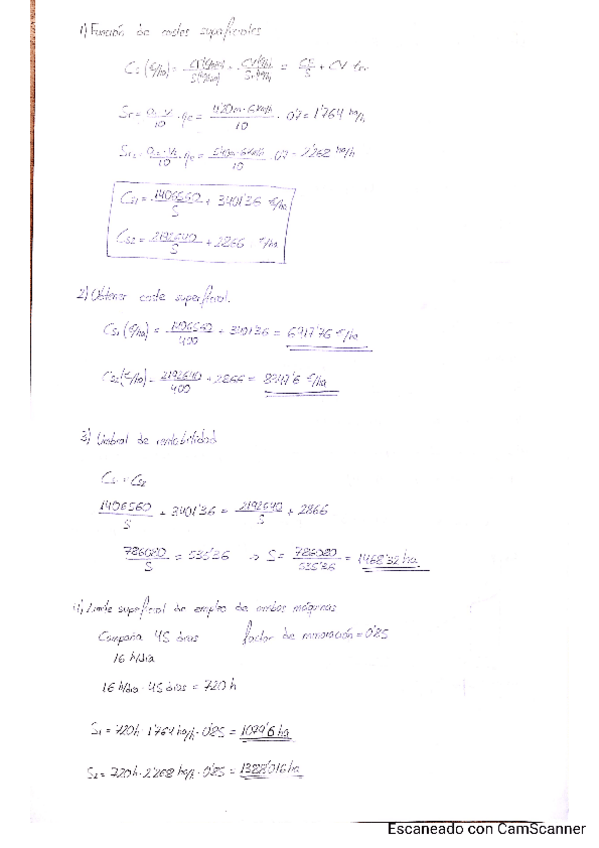 1) Función de costes superficiales
Cs (€/ha) = = = + CV
Sr = a · v / 10 · qe = 4'20m · 6km/h / 10 · 0'7 = 1'764 ha/h
Sr2 = a · v / 10 · qe = 5'40m · 6km/h / 10 · 0'7 = 2'268 ha/h
Cs1 = 1406560 / S + 3401'36 €/ha
Cs2 = 2192640 / S + 2866 €/ha
2) Obtener coste superficial.
Cs1 (€/ha) = 1406560 / 400 + 3401'36 = 6917'76 €/ha
Cs2 (€/ha) = 2192640 / 400 + 2866 = 8347'6 €/ha
3) Umbral de rentabilidad
Cs1 = Cs2
1406560 / S + 3401'36 = 2192640 / S + 2866
786080 / S = 535'36 → S = 786080 / 535'36 = 1468'32 ha
4) Límite superficial de empleo de ambas máquinas
Campaña 45 días factor de minoración = 0'85
16 h/día
16 h/día · 45 días = 720 h
S1 = 720h · 1'764 ha/h · 0'85 = 1079'6 ha
S2 = 720h · 2'268 ha/h · 0'85 = 1388'016 ha
Escaneado con CamScanner